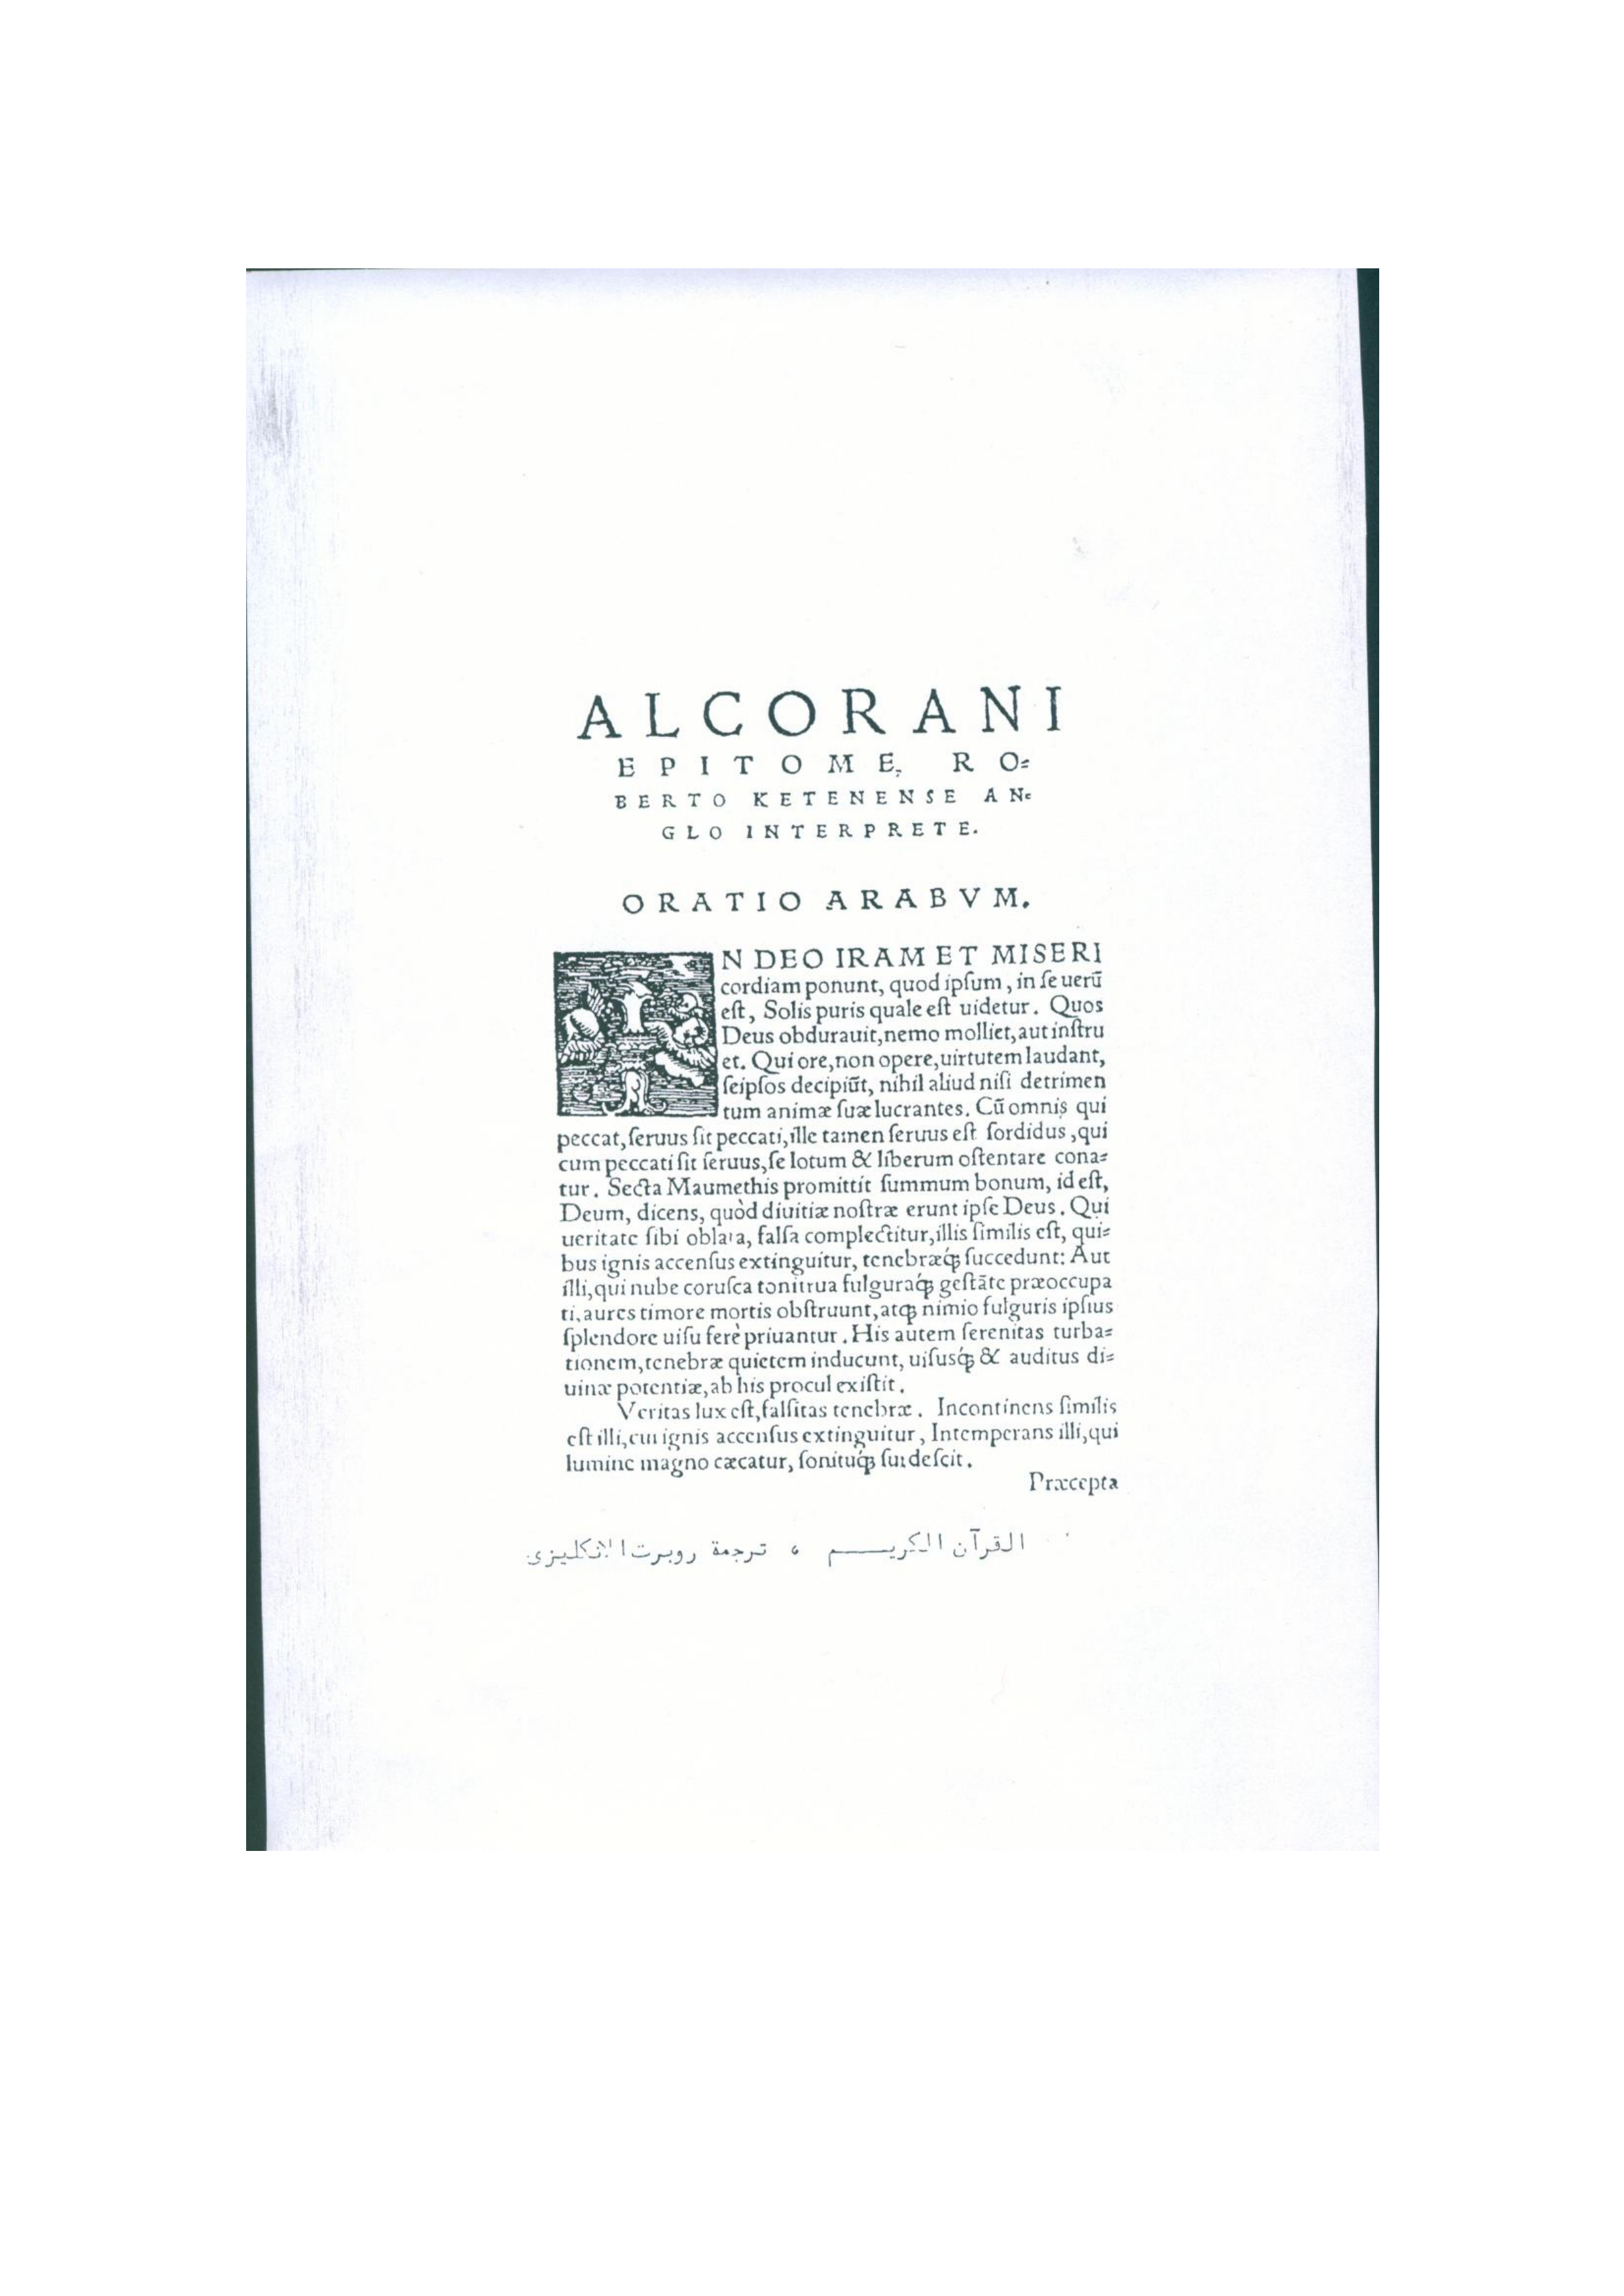 ALCORANI
EPITOME, RO-
BERTO KETENENSE AN-
GLO INTERPRETE.
ORATIO ARABVM.
IN DEO IRAM ET MISERI
cordiam ponunt, quod ipſum, in ſe uerũ
eſt, Solis puris quale eſt uidetur. Quos
Deus obdurauit, nemo molliet, aut inſtru
et. Qui ore, non opere, uirtutem laudant,
ſeipſos decipiũt, nihil aliud niſi detrimen
tum animæ ſuæ lucrantes. Cũ omnis qui
peccat, ſeruus ſit peccati, ille tamen ſeruus eſt ſordidus, qui
cum peccati ſit ſeruus, ſe lotum & liberum oſtentare cona-
tur. Secta Maumethis promittit ſummum bonum, id eſt,
Deum, dicens, quòd diuitiæ noſtræ erunt ipſe Deus. Qui
ueritate ſibi oblata, falſa complectitur, illis ſimilis eſt, qui-
bus ignis accenſus extinguitur, tenebræq́ꝫ ſuccedunt: Aut
illi, qui nube coruſca tonitrua fulguraq́ꝫ geſtãte præoccupa
ti, aures timore mortis obſtruunt, atqꝫ nimio fulguris ipſius
ſplendore uiſu ferè priuantur. His autem ſerenitas turba-
tionem, tenebræ quietem inducunt, uiſusq́ꝫ & auditus di-
uinæ potentiæ, ab his procul exiſtit.
Veritas lux eſt, falſitas tenebræ. Incontinens ſimilis
eſt illi, cui ignis accenſus extinguitur, Intemperans illi, qui
lumine magno cæcatur, ſonituq́ꝫ ſurdeſcit.
Præcepta
القرآن الكريم ، ترجمة روبرت الانكليزي